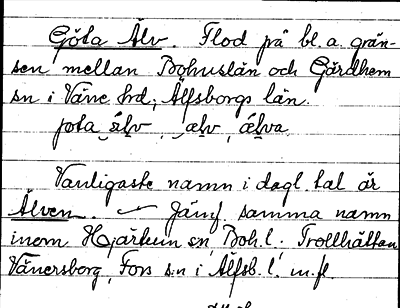 Göta Älv. Flod på bl. a. grän-
sen mellan Bohuslän och Gärdhem
sn i Väne hd, Älfsborgs län.
jota älv, älv, älva
Vanligaste namn i dagl. tal är
Älven. Jämf. samma namn
inom Hjärtum sn, Boh. l.; Trollhättan
Vänersborg, Fors sn i Älfsb. l. m. fl.